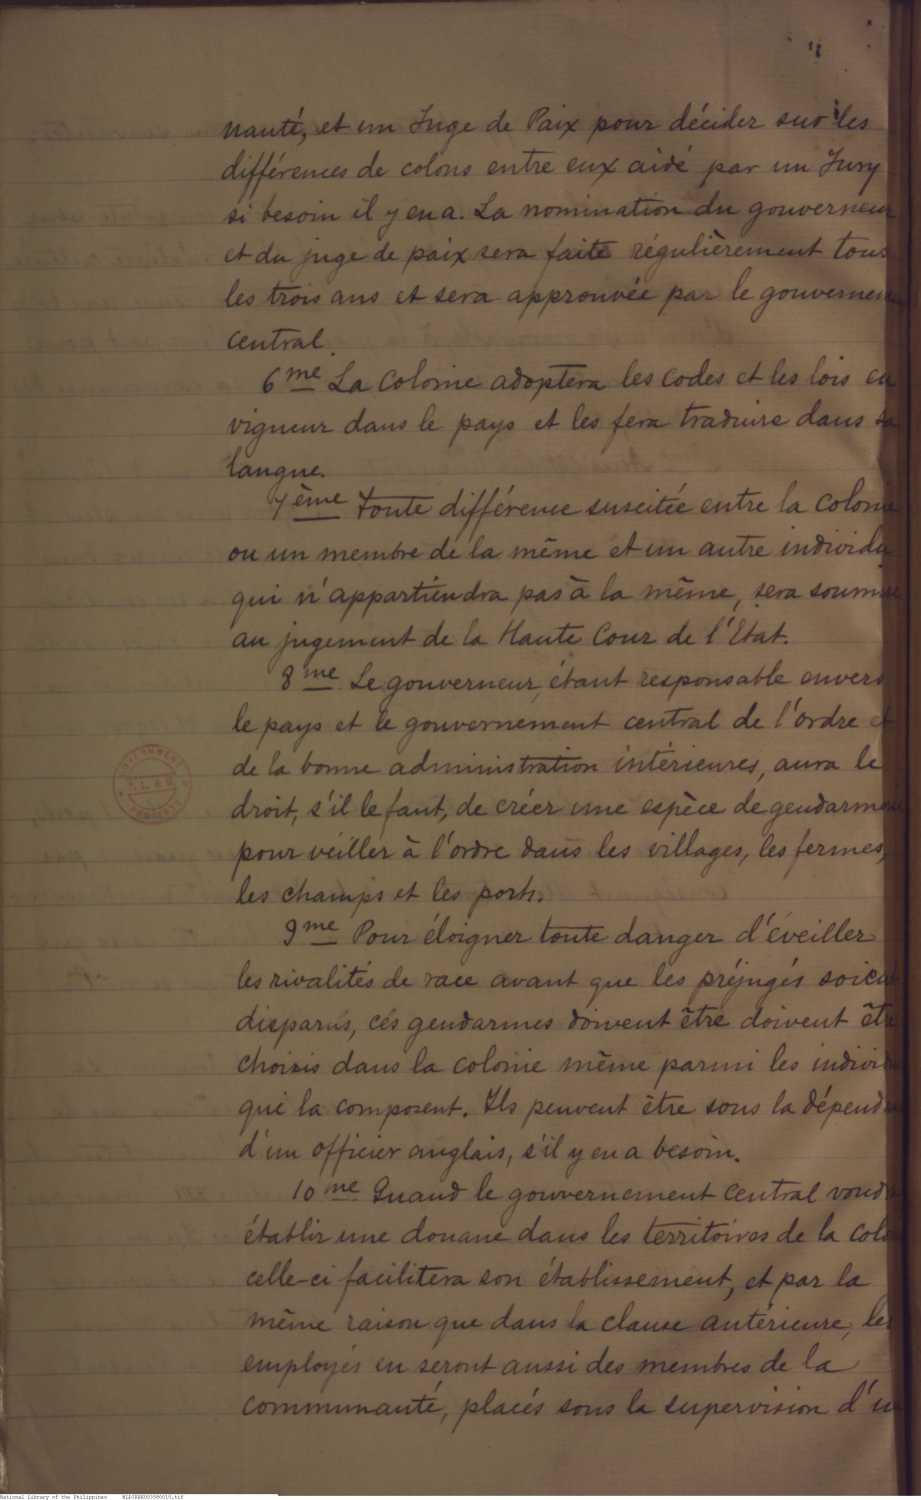 nauté, et un Juge de Paix pour décider sur les
différences de colons entre eux aidé par un Jury
si besoin il y en a. La nomination du gouverneur
et du juge de paix sera faite régulièrement tous
les trois ans et sera approuvée par le gouvernemen
central.
6me La Colonie adoptera les codes et les lois en
vigueur dans le pays et les fera traduire dans sa
langue.
7ème Toute différence suscitée entre la Colonie
ou un membre de la même et un autre individu
qui n'appartiendra pas à la même, sera soumise
au jugement de la Haute Cour de l'Etat.
8me Le gouverneur, étant responsable envers
le pays et le gouvernement central de l'ordre et
de la bonne administration intérieures, aura le
droit, s'il le faut, de créer une espèce de gendarme
pour veiller à l'ordre dans les villages, les fermes,
les champs et les ports.
9me Pour éloigner toute danger d'éveiller
les rivalités de race avant que les préjugés soient
disparus, ces gendarmes doivent être doivent êtr
choisis dans la colonie même parmi les individ
qui la composent. Ils peuvent être sous la dépend
d'un officier anglais, s'il y en a besoin.
10me Quand le gouvernement central voud
établir une douane dans les territoires de la colo
celle-ci facilitera son établissement, et par la
même raison que dans la clause antérieure, les
employés en seront aussi des membres de la
communauté, placés sous la supervision d'un
National Library of the Philippines